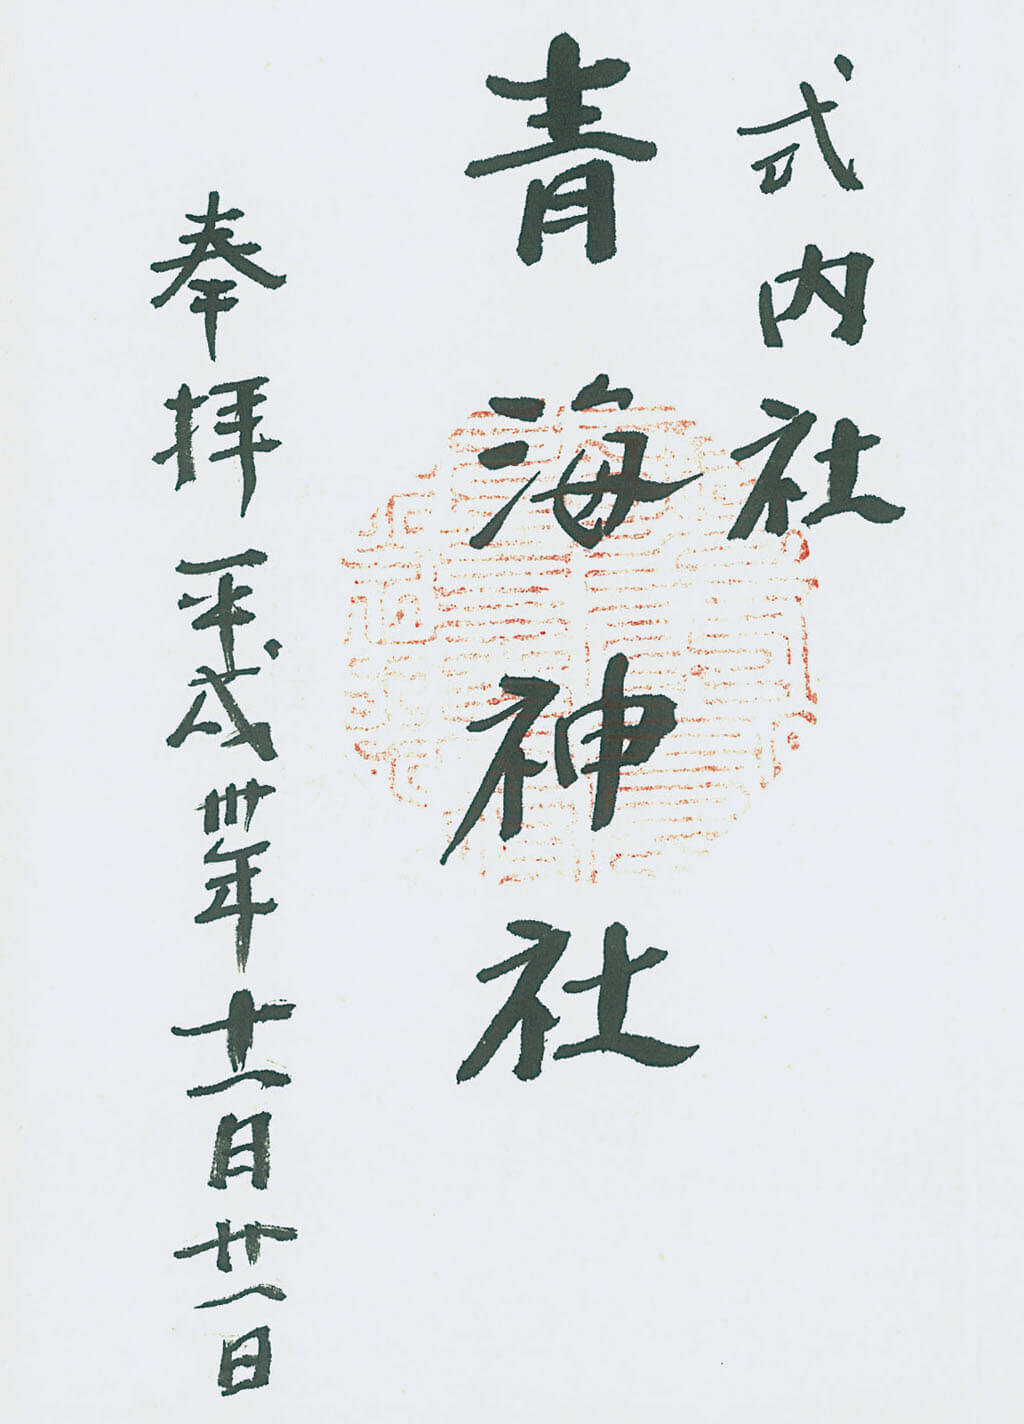 式内社
青海神社
奉拝 平成卅年十一月廿一日